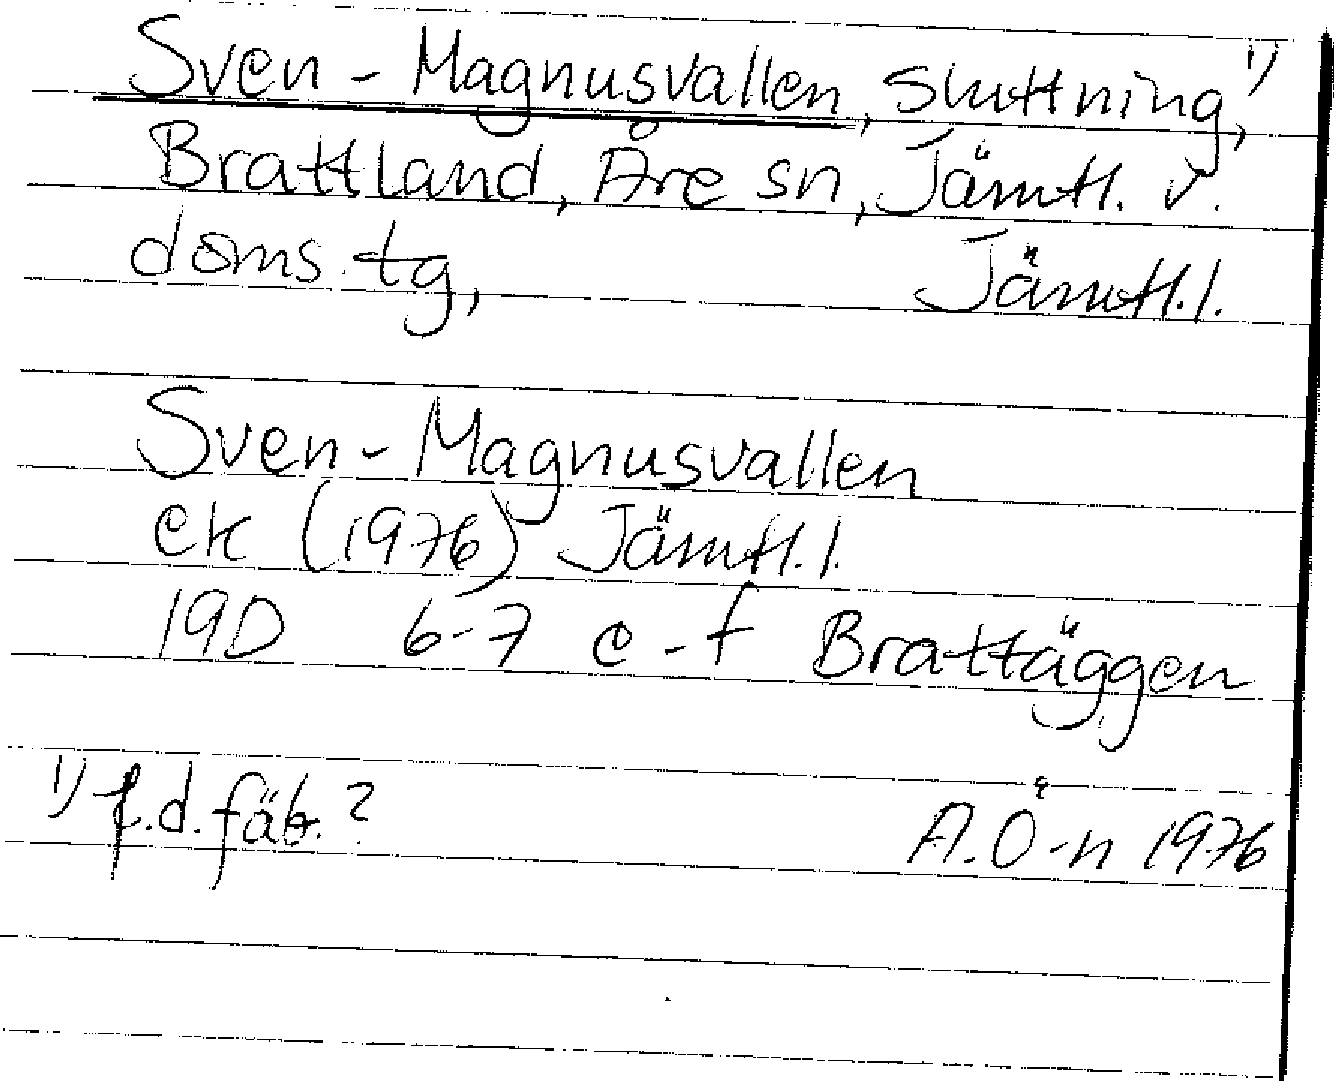 Sven-Magnusvallen, sluttning, 1)
Brattland, Åre sn, Jämtl. v.
doms.tg, Jämtl.l.
Sven-Magnusvallen
ek (1976) Jämtl.l.
19D 6-7 e-f Brattäggen
1) f.d. fäb.? A.Ö-n 1976